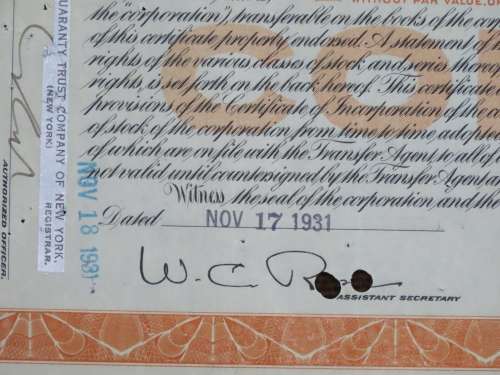 WITHOUT PAR VALUE, OF
the "corporation", transferable on the books of the co
of this certificate properly endorsed. A statement of
rights of the various classes of stock and series thereo
rights, is set forth on the back hereof. This certificate
provisions of the Certificate of Incorporation of the c
of stock of the corporation from time to time adop
of which are on file with the Transfer Agent, to all of
not valid until countersigned by the Transfer Agent a
Witness the seal of the corporation and the
Dated NOV 17 1931
W. C.
ASSISTANT SECRETARY
GUARANTY TRUST COMPANY OF NEW YORK,
(NEW YORK)
REGISTRAR.
NOV 18 1931
AUTHORIZED OFFICER.
CO